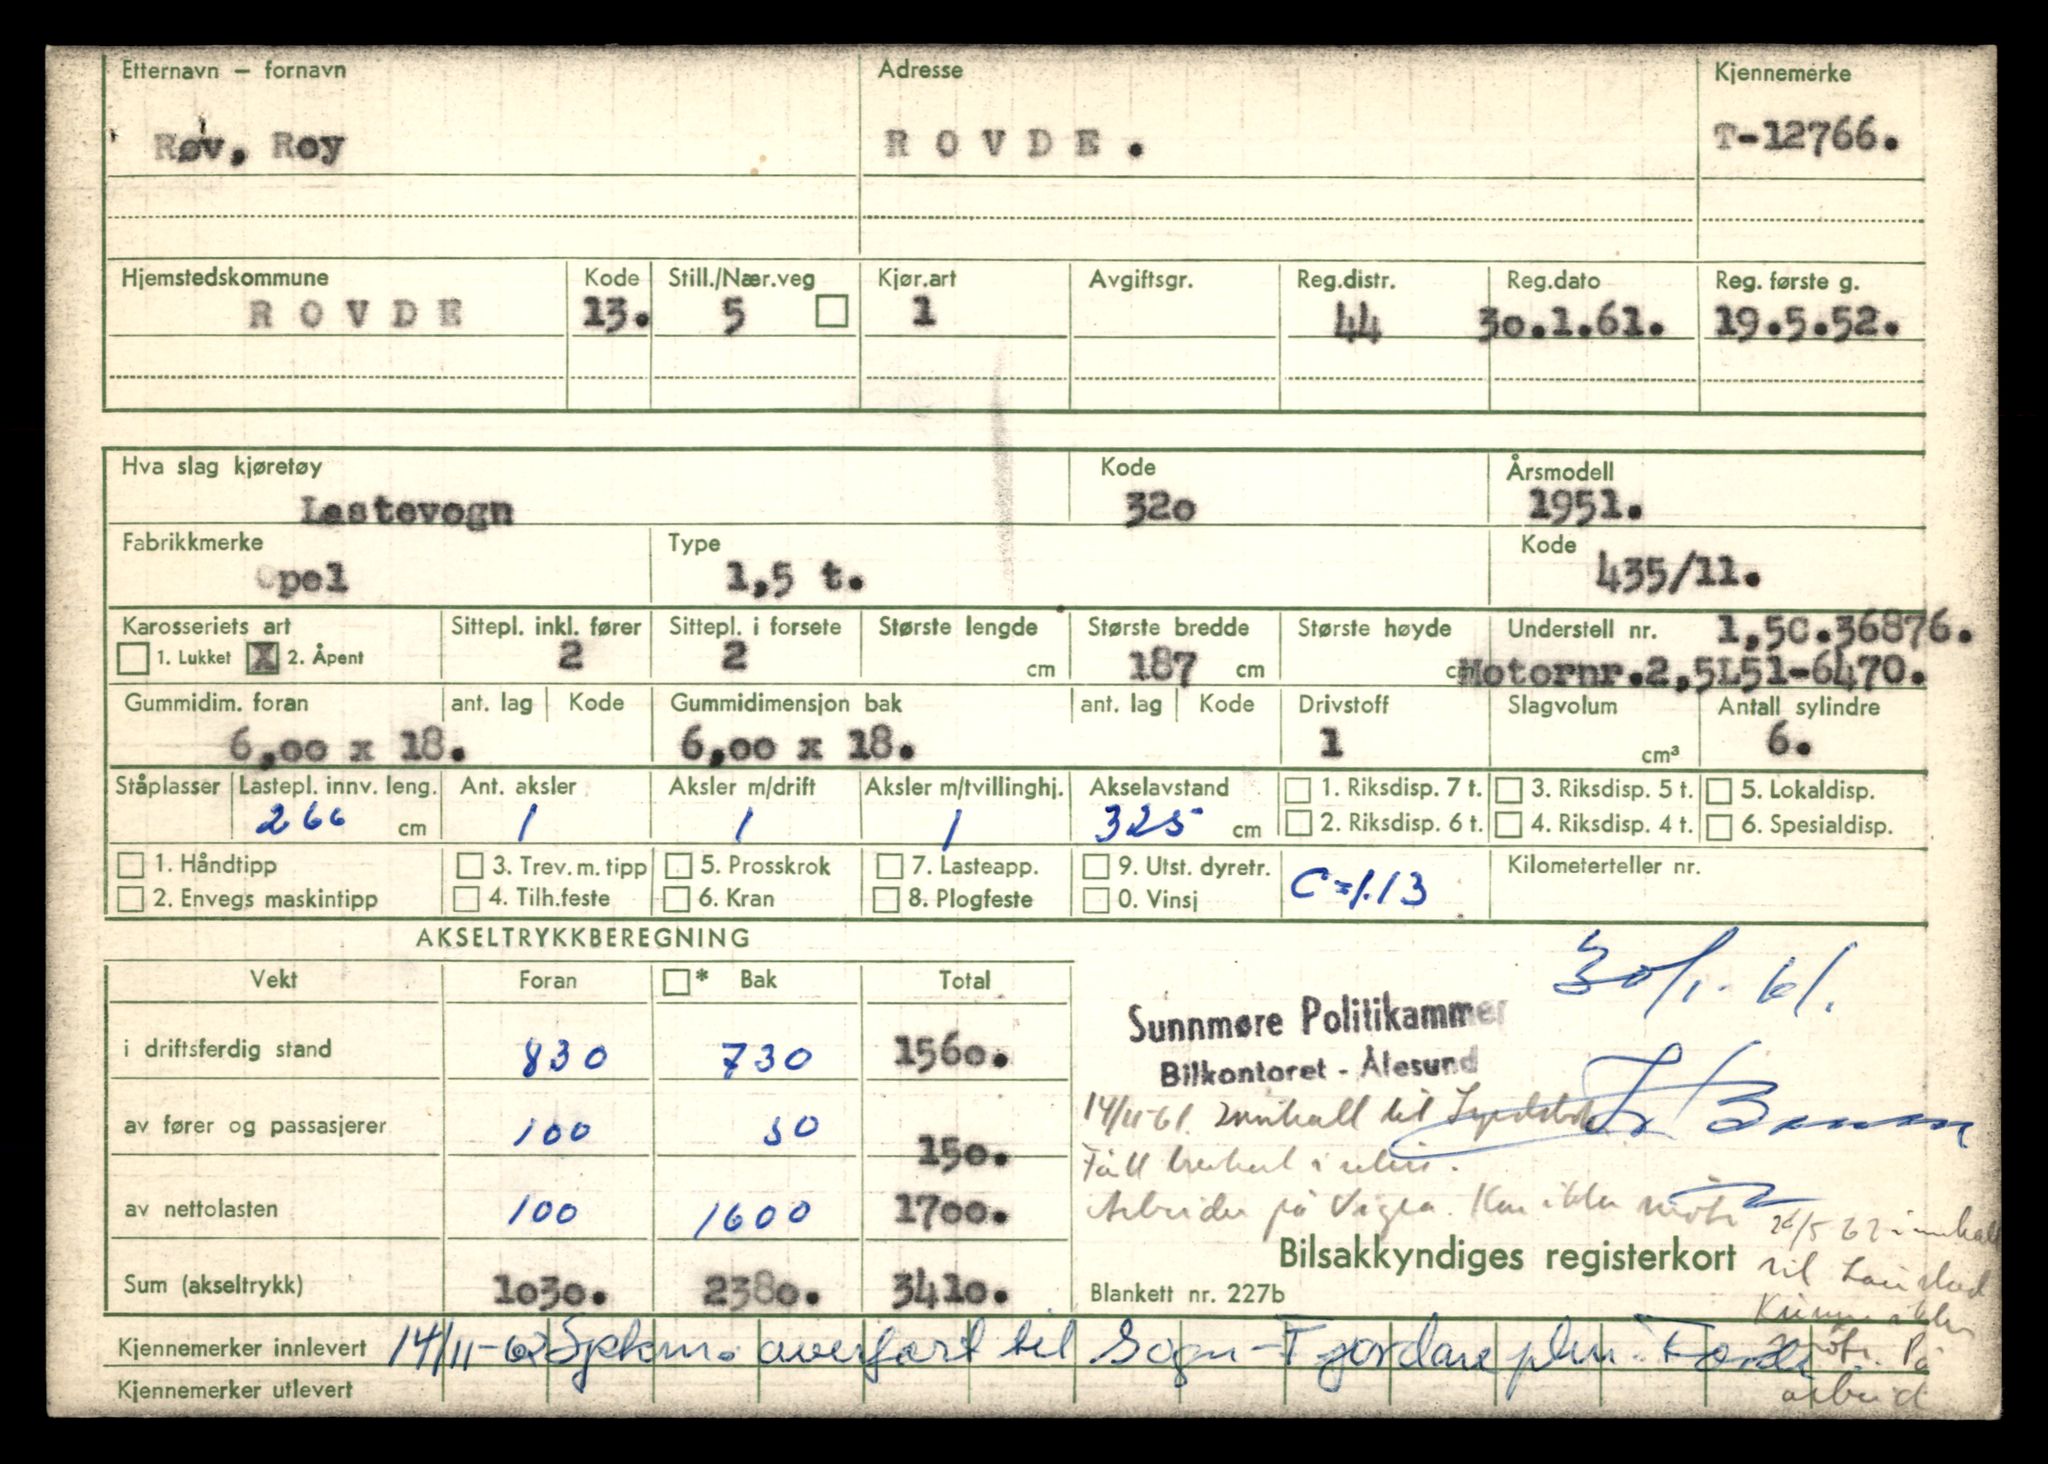 Etternavn – fornavn Adresse Kjennemerke
Røv, Roy ROVDE. T-12766.
Hjemstedskommune Kode Still./Nær.veg Kjør.art Avgiftsgr. Reg.distr. Reg.dato Reg. første g.
ROVDE 13. 5 1 44 30.1.61. 19.5.52.
Hva slag kjøretøy Kode Årsmodell
Lastevogn 320 1951.
Fabrikkmerke Type Kode
Opel 1,5 t. 435/11.
Karosseriets art Sittepl. inkl. fører Sittepl. i forsete Største lengde Største bredde Største høyde Understell nr. 1,5C.36876.
1. Lukket X 2. Åpent 2 2 cm 187 cm cm Motornr.2,5L51-6470.
Gummidim. foran ant. lag Kode Gummidimensjon bak ant. lag Kode Drivstoff Slagvolum Antall sylindre
6,00 x 18. 6,00 x 18. 1 cm³ 6.
Ståplasser Lastepl. innv. leng. Ant. aksler Aksler m/drift Aksler m/tvillinghj. Akselavstand 1. Riksdisp. 7 t. 3. Riksdisp. 5 t. 5. Lokaldisp.
266 cm 1 1 1 325 cm 2. Riksdisp. 6 t. 4. Riksdisp. 4 t. 6. Spesialdisp.
1. Håndtipp 3. Trev. m. tipp 5. Prosskrok 7. Lasteapp. 9. Utst. dyretr. C=1.13 Kilometerteller nr.
2. Envegs maskintipp 4. Tilh.feste 6. Kran 8. Plogfeste 0. Vinsj
AKSELTRYKKBEREGNING
30/1-61.
Vekt Foran * Bak Total
Sunnmøre Politikammer
i driftsferdig stand 830 730 1560.
Bilkontoret - Ålesund
14/11-61 innkall til
av fører og passasjerer 100 50 150.
Arbeider på Vigra. Kan ikke møte
av nettolasten 100 1600 1700.
26/5 62 innkall
Bilsakkyndiges registerkort
til
Sum (akseltrykk) 1030. 2380. 3410.
Blankett nr. 227b
ikke
møte. På
arbeid
Kjennemerker innlevert 14/11-62 Spkm. overført til Sogn-Fjordane plm. Førde
Kjennemerker utlevert